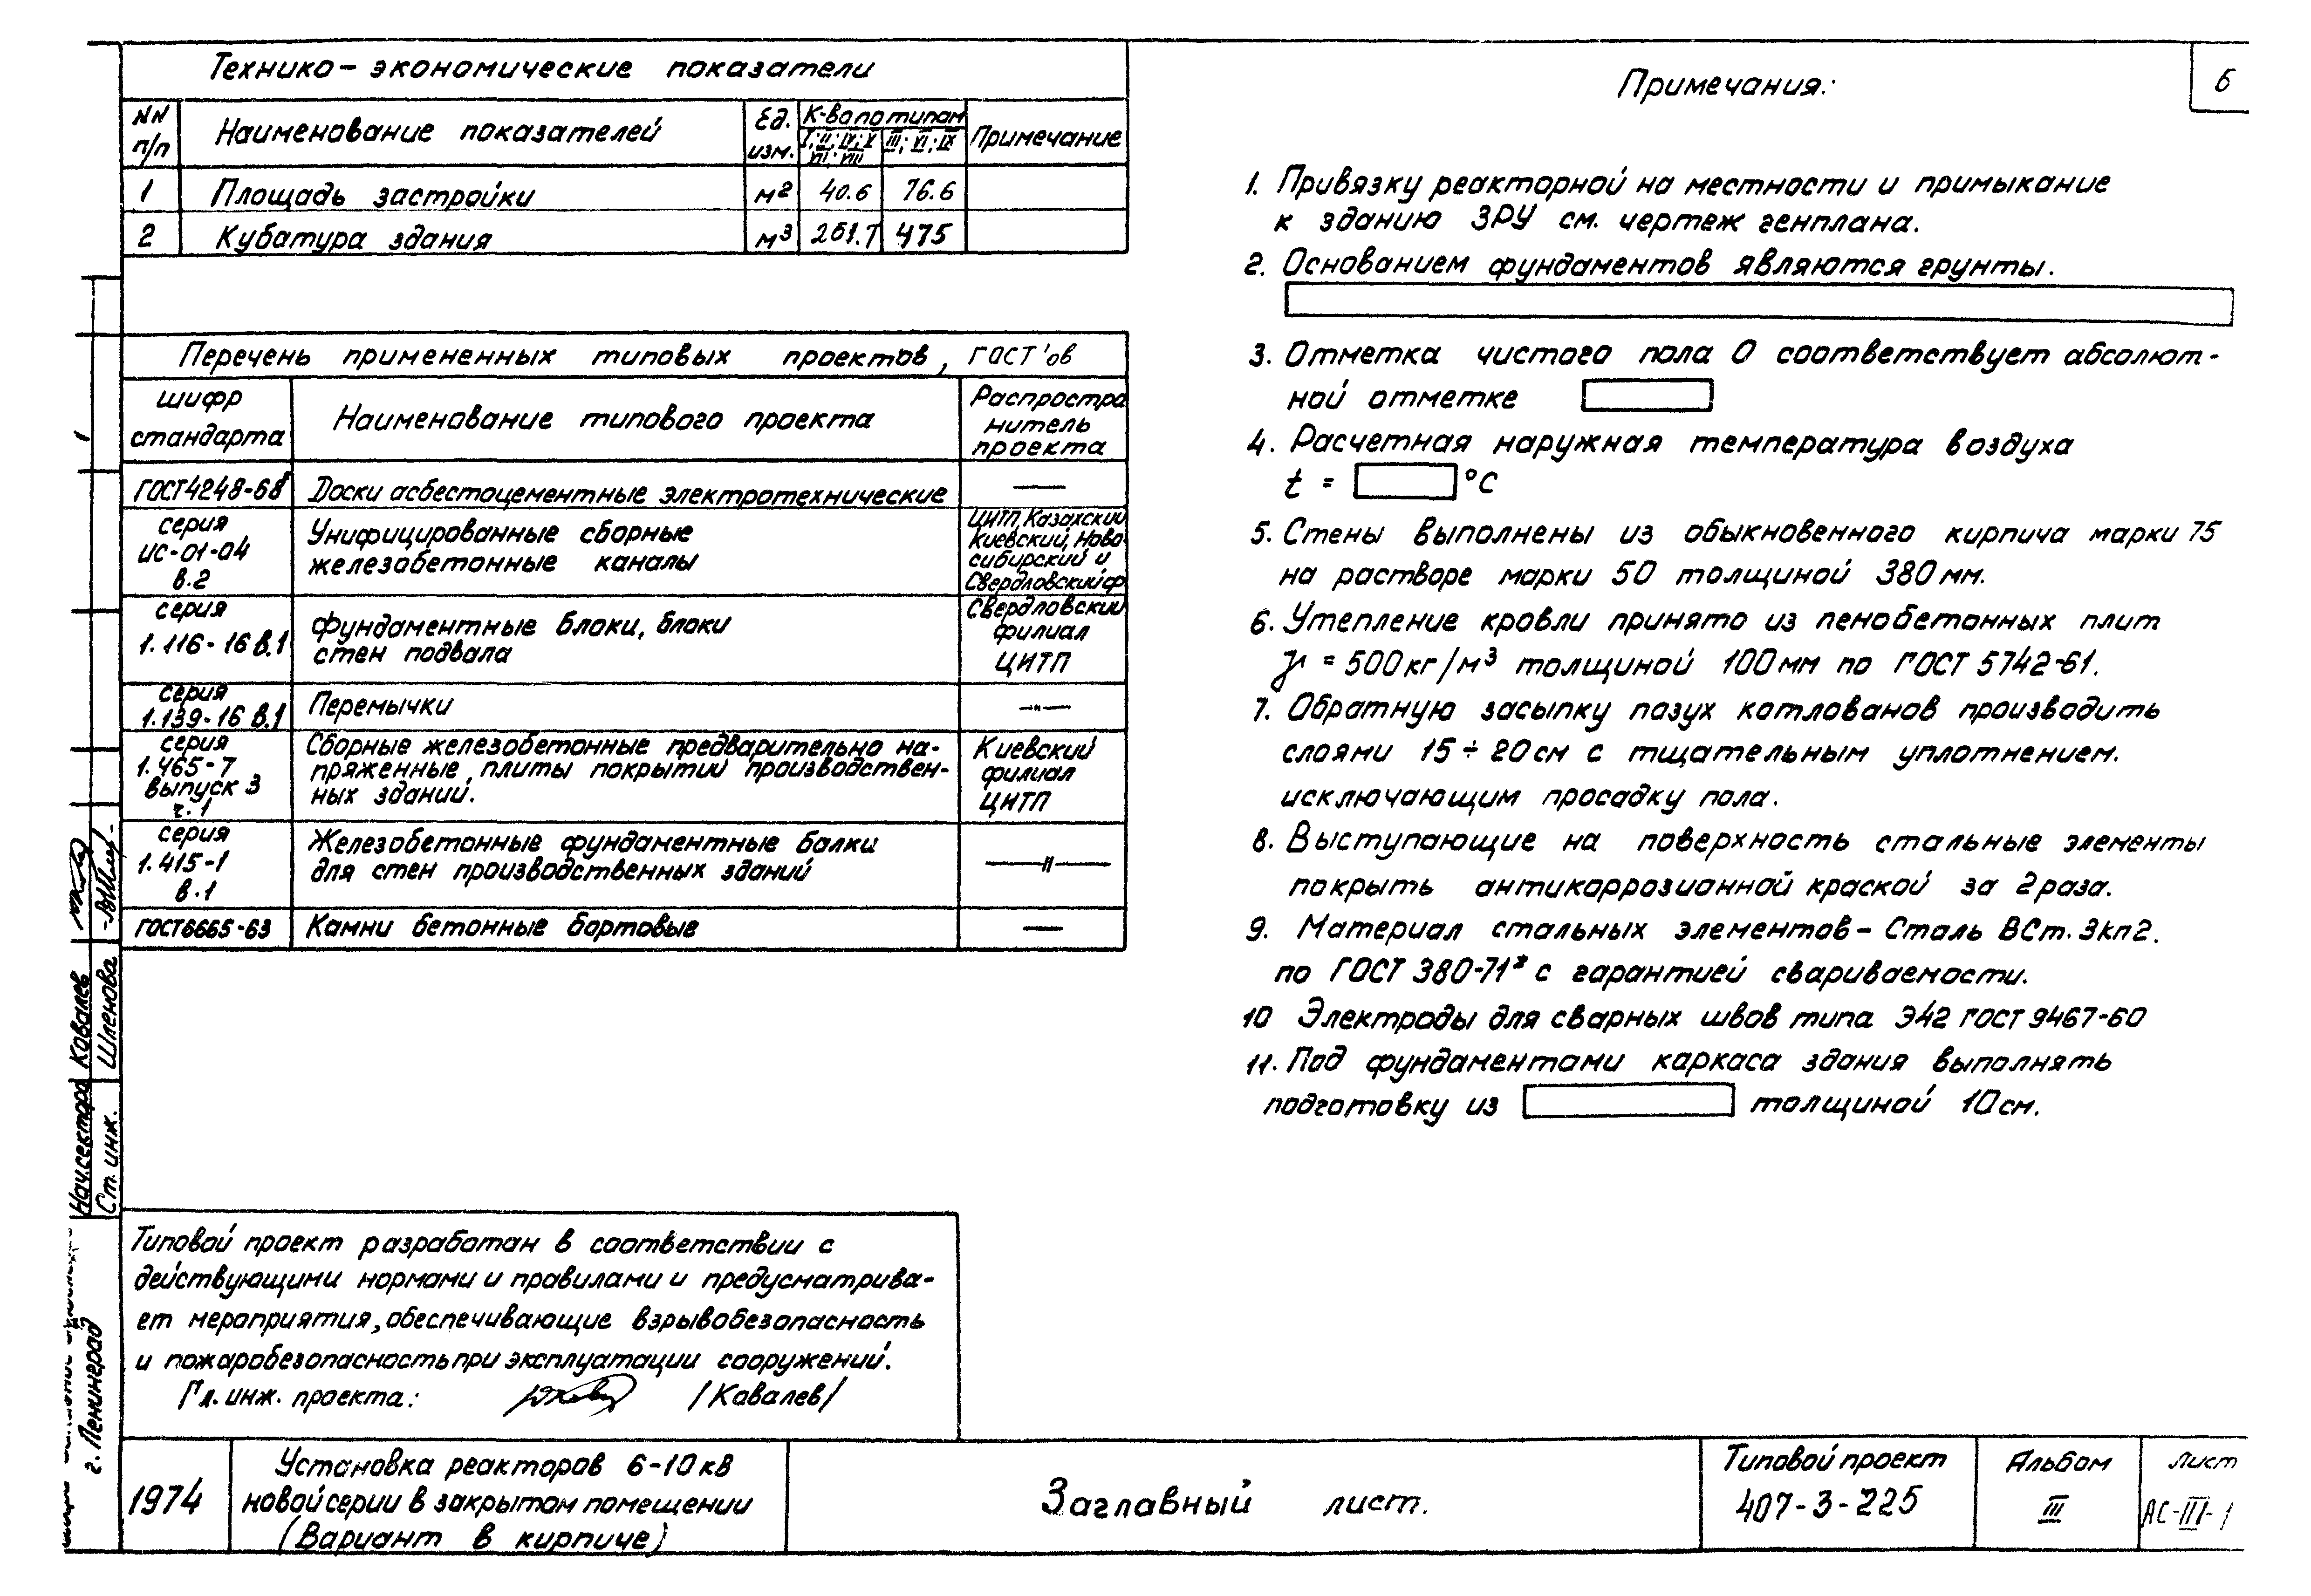 Технико-экономические показатели
NN п/п
Наименование показателей
Ед. изм.
К-во по типам
I; II; IV; V VII; VIII
III; VI; IX
Примечание
1 Площадь застройки м2 40.6 76.6
2 Кубатура здания м3 261.7 475
Перечень примененных типовых проектов, ГОСТ'ов
шифр стандарта
Наименование типового проекта
Распростра
нитель
проекта
ГОСТ4248-68 Доски асбестоцементные электротехнические —
серия
ИС-01-04
в.2
Унифицированные сборные
железобетонные каналы
ЦИТП, Казахский
Киевский, Ново-
сибирский и
Свердловский ф.
серия
1.116-16 в.1
Фундаментные блоки, блоки
стен подвала
Свердловский
филиал
ЦИТП
серия
1.139-16 в.1
Перемычки
—"—
серия
1.465-7
выпуск 3
ч.1
Сборные железобетонные предварительно на-
пряженные, плиты покрытий производствен-
ных зданий.
Киевский
филиал
ЦИТП
серия
1.415-1
в.1
Железобетонные фундаментные балки
для стен производственных зданий
—"—
ГОСТ6665-63 Камни бетонные бортовые —
Типовой проект разработан в соответствии с
действующими нормами и правилами и предусматрива-
ет мероприятия, обеспечивающие взрывобезопасность
и пожаробезопасность при эксплуатации сооружений.
Гл. инж. проекта: /Ковалев/
Примечания:
6
1. Привязку реакторной на местности и примыкание
к зданию ЗРУ см. чертеж генплана.
2. Основанием фундаментов являются грунты.
3. Отметка чистого пола 0 соответствует абсолют-
ной отметке
4. Расчетная наружная температура воздуха
t = °С
5. Стены выполнены из обыкновенного кирпича марки 75
на растворе марки 50 толщиной 380 мм.
6. Утепление кровли принято из пенобетонных плит
γ = 500 кг/м3 толщиной 100 мм по ГОСТ 5742-61.
7. Обратную засыпку пазух котлованов производить
слоями 15÷20 см с тщательным уплотнением.
исключающим просадку пола.
8. Выступающие на поверхность стальные элементы
покрыть антикоррозионной краской за 2 раза.
9. Материал стальных элементов - Сталь ВСт. 3кп2.
по ГОСТ 380-71* с гарантией свариваемости.
10 Электроды для сварных швов типа Э42 ГОСТ 9467-60
11. Под фундаментами каркаса здания выполнять
подготовку из толщиной 10 см.
Нач. сектора Ковалев
Ст. инж. Шленова
г. Ленинград
1974
Установка реакторов 6-10 кв
новой серии в закрытом помещении
(Вариант в кирпиче)
Заглавный лист.
Типовой проект
407-3-225
Альбом
III
Лист
АС-III-1